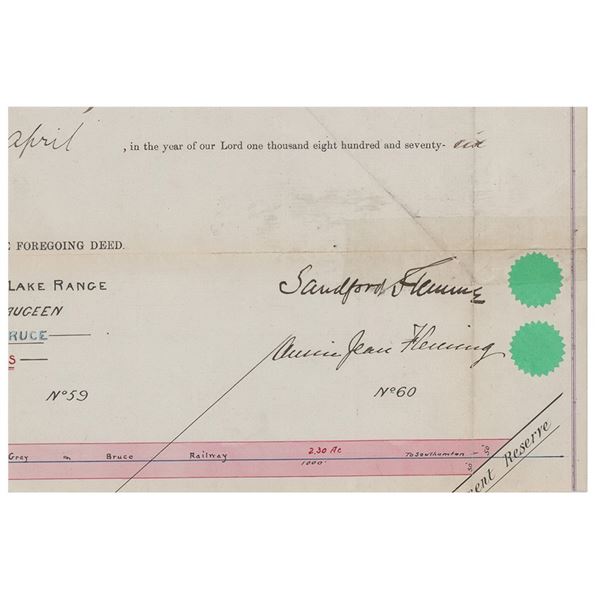 April , in the year of our Lord one thousand eight hundred and seventy- six
FOREGOING DEED.
LAKE RANGE
Sandford Fleming
UGEEN
RUCE
S
Annin Jean Fleming
No 59
No 60
Grey & Bruce Railway
2.30 Ac
1000'
To Southampton
50
50
ent Reserve